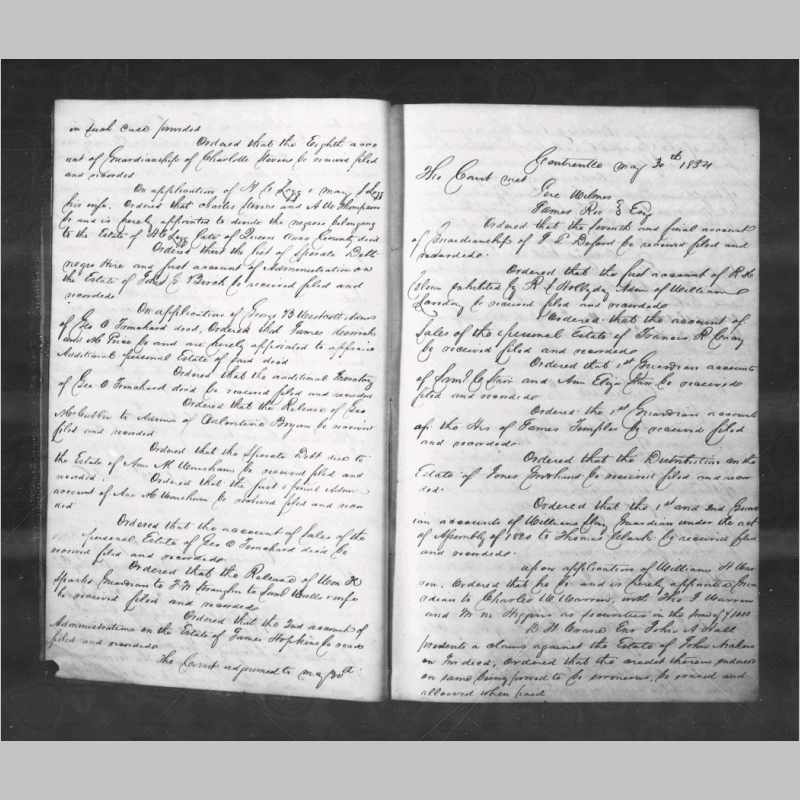 in such case provided
Ordered that the Eighth acco
unt of Guardianship of Charlotte Nevins be received filed
and recorded
On application of H C Legg & Mary S Legg
his wife. Ordered that Charles Nevins and A W Thompson
be and is hereby appointed to divide the negroes belonging
to the Estate of H C Legg late of Queen Anns County decd
Ordered that the list of Sperate Debts
negro Hire and first account of Administration on
the Estate of John E Birch be received filed and
recorded
On application of George B Westcott Admr
of Geo O Trenchard decd, Ordered that James
and M be and are hereby appointed to appraise
Additional personal Estate of said decd
Ordered that the additional Inventory
of Geo O Trenchard decd be received filed and recorded
Ordered that the Release of Geo
McCubbin to Admrs of Valentine Bryan be received
filed and recorded
Ordered that the Sperate Debt due to
the Estate of Ann M be received filed and
recorded. Ordered that the first & final Admn
account of Ann M be received filed and recor
ded
Ordered that the account of Sales of the
personal Estate of Geo O Trenchard decd be
received filed and recorded
Ordered that the Release of Wm H
Sparks Guardian to F W to Saml & wife
be received filed and recorded
Ordered that the 2nd account of
Administration on the Estate of James Hopkins be recd
filed and recorded
The Court adjourned to May 30th
Centreville May 30th 1834
The Court met
Gere Wilmer
James Esq
Ordered that the seventh and final account
of Guardianship of J E Deford be received filed and
recorded.
Ordered that the first account of
exhibited by R Hollyday Admr of William
be received filed and recorded
Ordered that the account of
Sales of the personal Estate of Francis R
be received filed and recorded
Ordered that 1st Guardian accounts
of Saml C and Ann Eliza be received
filed and recorded
Ordered the 1st Guardian account
of the Hrs of James Temple be received filed
and recorded.
Ordered that the Distribution on the
Estate of Jones be received filed and recor
ded.
Ordered that the 1st and 2nd Guard
ian accounts of William Guardian under the act
of Assembly of 1820 to Thomas Clark be received filed
and recorded.
upon application of William H War
ren. Ordered that he be and is hereby appointed Gua
rdian to Charles W Warren, with Thos J Warren
and M M Higgins as securities in the sum of $1000
John A Hall
presents a claim against the Estate of John
decd, Ordered that the credit thereon endorsed
on same being proved to be erroneous, be erased and
allowed when paid